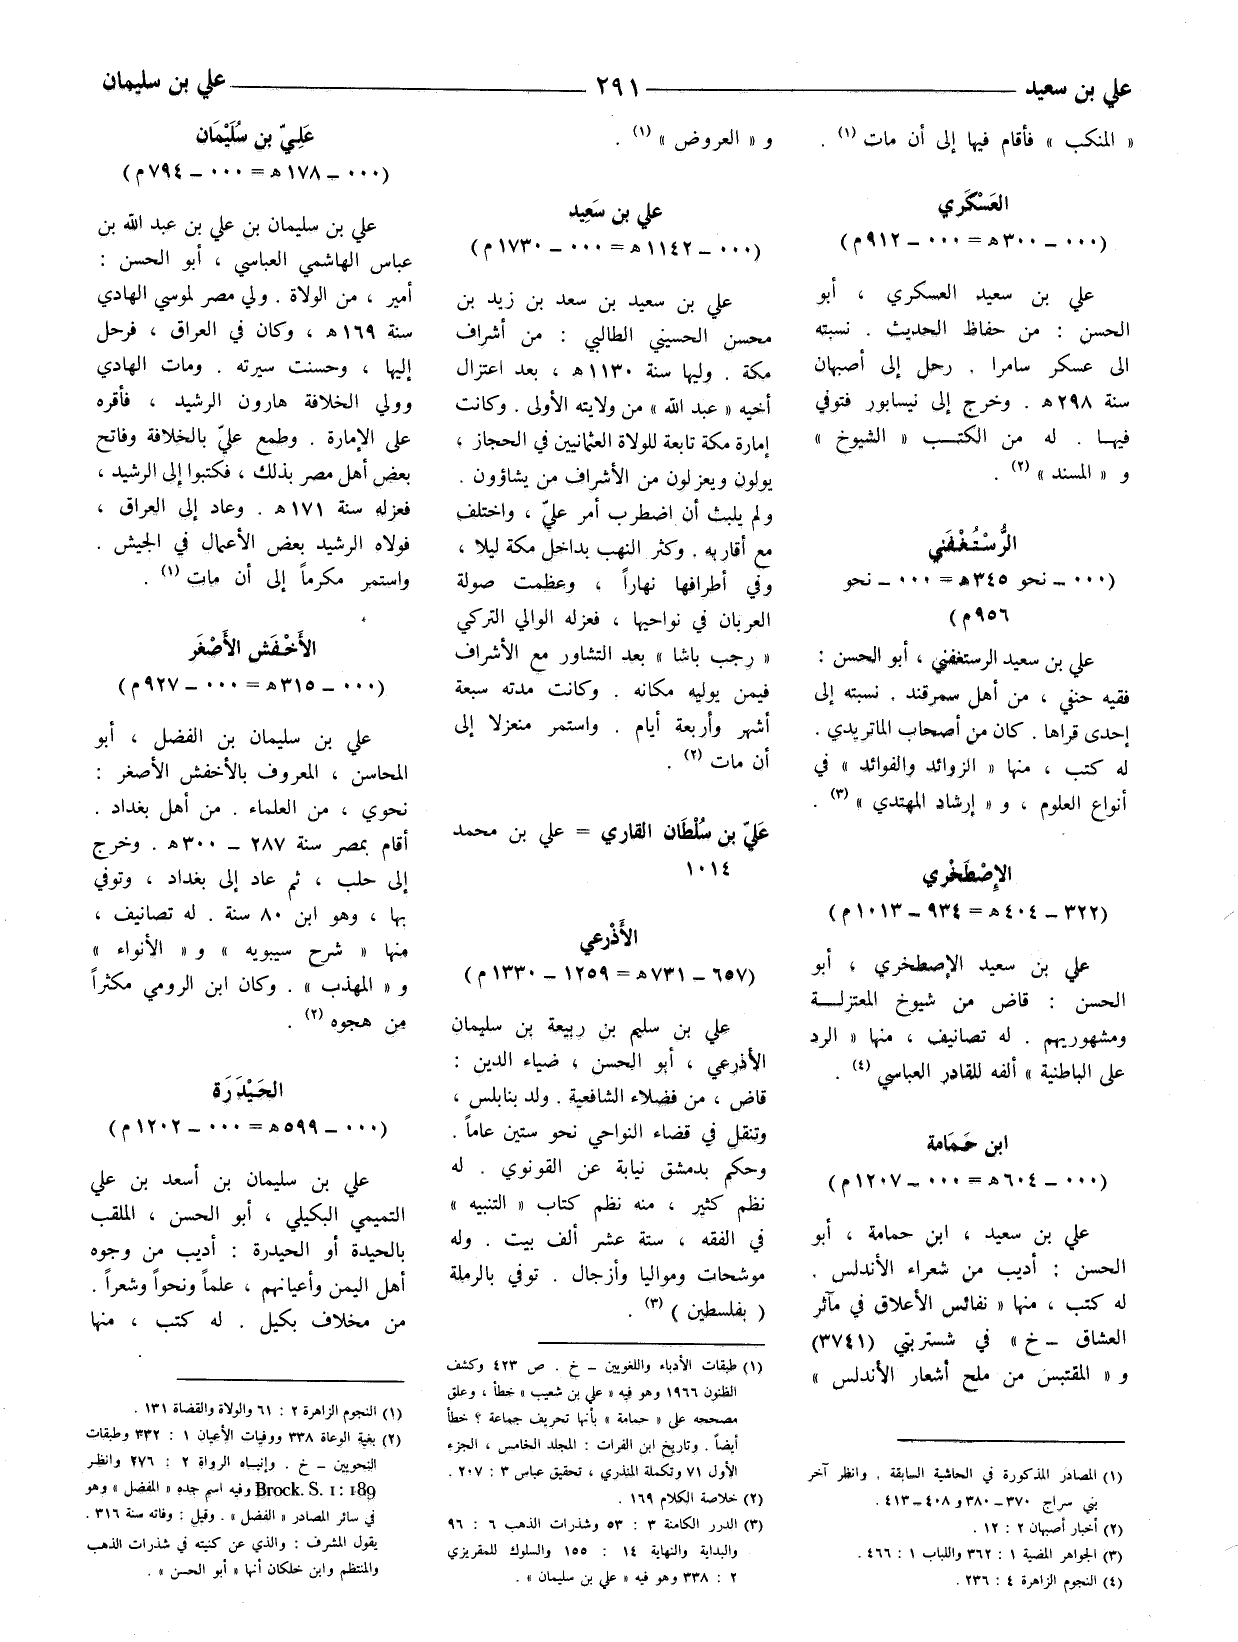 علي بن سعيد ٢٩١ علي بن سليمان
« المنكب » فأقام فيها إلى أن مات (١) .
العَسْكَري
(٠٠٠ ـ ٣٠٠ هـ = ٠٠٠ ـ ٩١٢ م)
علي بن سعيد العسكري ، أبو
الحسن : من حفاظ الحديث . نسبته
الى عسكر سامرا . رحل إلى أصبهان
سنة ٢٩٨ هـ . وخرج إلى نيسابور فتوفي
فيها . له من الكتب « الشيوخ »
و « المسند » (٢) .
الرُّسْتُغْفَني
(٠٠٠ ـ نحو ٣٤٥ هـ = ٠٠٠ ـ نحو
٩٥٦ م)
علي بن سعيد الرستغفني ، أبو الحسن :
فقيه حنفي ، من أهل سمرقند . نسبته إلى
إحدى قراها . كان من أصحاب الماتريدي .
له كتب ، منها « الزوائد والفوائد » في
أنواع العلوم ، و « إرشاد المهتدي » (٣) .
الإصْطَخْري
(٣٢٢ ـ ٤٠٤ هـ = ٩٣٤ ـ ١٠١٣ م)
علي بن سعيد الإصطخري ، أبو
الحسن : قاض من شيوخ المعتزلة
ومشهوريهم . له تصانيف ، منها « الرد
على الباطنية » ألفه للقادر العباسي (٤) .
ابن حَمَامة
(٠٠٠ ـ ٦٠٤ هـ = ٠٠٠ ـ ١٢٠٧ م)
علي بن سعيد ، ابن حمامة ، أبو
الحسن : أديب من شعراء الأندلس .
له كتب ، منها « نفائس الأعلاق في مآثر
العشاق ـ خ » في شستربتي (٣٧٤١)
و « المقتبس من ملح أشعار الأندلس »
(١) المصادر المذكورة في الحاشية السابقة . وانظر آخر
بني سراج ٣٧٠ ـ ٣٨٠ و ٤٠٨ ـ ٤١٣ .
(٢) أخبار أصبهان ٢ : ١٢ .
(٣) الجواهر المضية ١ : ٣٦٢ واللباب ١ : ٤٦٦ .
(٤) النجوم الزاهرة ٤ : ٢٣٦ .
و « العروض » (١) .
علي بن سَعِيد
(٠٠٠ ـ ١١٤٢ هـ = ٠٠٠ ـ ١٧٣٠ م)
علي بن سعيد بن سعد بن زيد بن
محسن الحسيني الطالبي : من أشراف
مكة . وليها سنة ١١٣٠ هـ ، بعد اعتزال
أخيه « عبد الله » من ولايته الأولى . وكانت
إمارة مكة تابعة للولاة العثمانيين في الحجاز ،
يولون ويعزلون من الأشراف من يشاؤون .
ولم يلبث أن اضطرب أمر عليّ ، واختلف
مع أقاربه . وكثر النهب بداخل مكة ليلا ،
وفي أطرافها نهاراً ، وعظمت صولة
العربان في نواحيها ، فعزله الوالي التركي
« رجب باشا » بعد التشاور مع الأشراف
فيمن يوليه مكانه . وكانت مدته سبعة
أشهر وأربعة أيام . واستمر منعزلا إلى
أن مات (٢) .
عَليّ بن سُلْطَان القاري = علي بن محمد
١٠١٤
الأَذْرعي
(٦٥٧ ـ ٧٣١ هـ = ١٢٥٩ ـ ١٣٣٠ م)
علي بن سليم بن ربيعة بن سليمان
الأذرعي ، أبو الحسن ، ضياء الدين :
قاض ، من فضلاء الشافعية . ولد بنابلس ،
وتنقل في قضاء النواحي نحو ستين عاماً .
وحكم بدمشق نيابة عن القونوي . له
نظم كثير ، منه نظم كتاب « التنبيه »
في الفقه ، ستة عشر ألف بيت . وله
موشحات ومواليا وأزجال . توفي بالرملة
( بفلسطين ) (٣) .
(١) طبقات الأدباء واللغويين ـ خ . ص ٤٢٣ وكشف
الظنون ١٩٦٦ وهو فيه « علي بن شعيب » خطأ ، وعلق
مصححه على « حمامة » بأنها تحريف جماعة ؟ خطأ
أيضاً . وتاريخ ابن الفرات : المجلد الخامس ، الجزء
الأول ٧١ وتكملة المنذري ، تحقيق عباس ٣ : ٢٠٧ .
(٢) خلاصة الكلام ١٦٩ .
(٣) الدرر الكامنة ٣ : ٥٣ وشذرات الذهب ٦ : ٩٦
والبداية والنهاية ١٤ : ١٥٥ والسلوك للمقريزي
٢ : ٣٣٨ وهو فيه « علي بن سليمان » .
عَلِيّ بن سُلَيْمَان
(٠٠٠ ـ ١٧٨ هـ = ٠٠٠ ـ ٧٩٤ م)
علي بن سليمان بن علي بن عبد الله بن
عباس الهاشمي العباسي ، أبو الحسن :
أمير ، من الولاة . ولي مصر لموسي الهادي
سنة ١٦٩ هـ ، وكان في العراق ، فرحل
إليها ، وحسنت سيرته . ومات الهادي
وولي الخلافة هارون الرشيد ، فأقره
على الإمارة . وطمع عليّ بالخلافة وفاتح
بعض أهل مصر بذلك ، فكتبوا إلى الرشيد ،
فعزله سنة ١٧١ هـ . وعاد إلى العراق ،
فولاه الرشيد بعض الأعمال في الجيش .
واستمر مكرماً إلى أن مات (١) .
الأَخْفَش الأَصْغَر
(٠٠٠ ـ ٣١٥ هـ = ٠٠٠ ـ ٩٢٧ م)
علي بن سليمان بن الفضل ، أبو
المحاسن ، المعروف بالأخفش الأصغر :
نحوي ، من العلماء . من أهل بغداد .
أقام بمصر سنة ٢٨٧ ـ ٣٠٠ هـ . وخرج
إلى حلب ، ثم عاد إلى بغداد ، وتوفي
بها ، وهو ابن ٨٠ سنة . له تصانيف ،
منها « شرح سيبويه » و « الأنواء »
و « المهذب » . وكان ابن الرومي مكثراً
من هجوه (٢) .
الحَيْدَرَة
(٠٠٠ ـ ٥٩٩ هـ = ٠٠٠ ـ ١٢٠٢ م)
علي بن سليمان بن أسعد بن علي
التميمي البكيلي ، أبو الحسن ، الملقب
بالحيدة أو الحيدرة : أديب من وجوه
أهل اليمن وأعيانهم ، علماً ونحواً وشعراً .
من مخلاف بكيل . له كتب ، منها
(١) النجوم الزاهرة ٢ : ٦١ والولاة والقضاة ١٣١ .
(٢) بغية الوعاة ٣٣٨ ووفيات الأعيان ١ : ٣٣٢ وطبقات
النحويين ـ خ . وإنباه الرواة ٢ : ٢٧٦ وانظر
Brock. S. 1: 189 وفيه اسم جده « المفضل » وهو
في سائر المصادر « الفضل » . وقيل : وفاته سنة ٣١٦ .
يقول المشرف : والذي عن كنيته في شذرات الذهب
والمنتظم وابن خلكان أنها « أبو الحسن » .